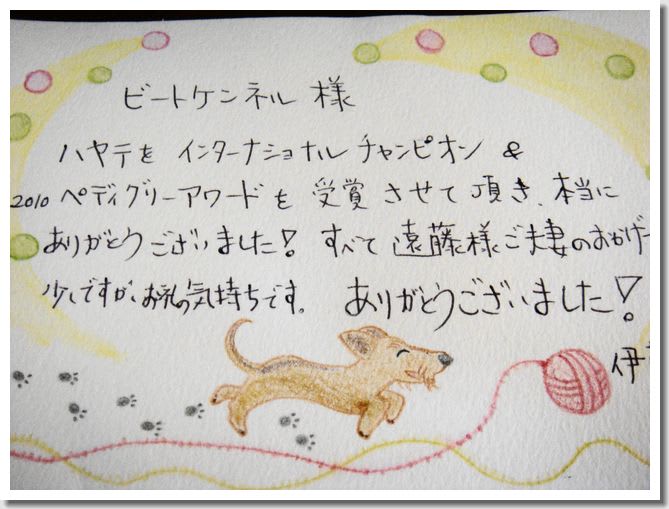 ビートケンネル 様
ハヤテを インターナショナル チャンピオン &
2010 ペディグリーアワードを 受賞 させて 頂き、本当に
ありがとうございました! すべて 遠藤様ご夫妻のおかげ
少しですが、お礼の気持ちです。 ありがとうございました!
伊